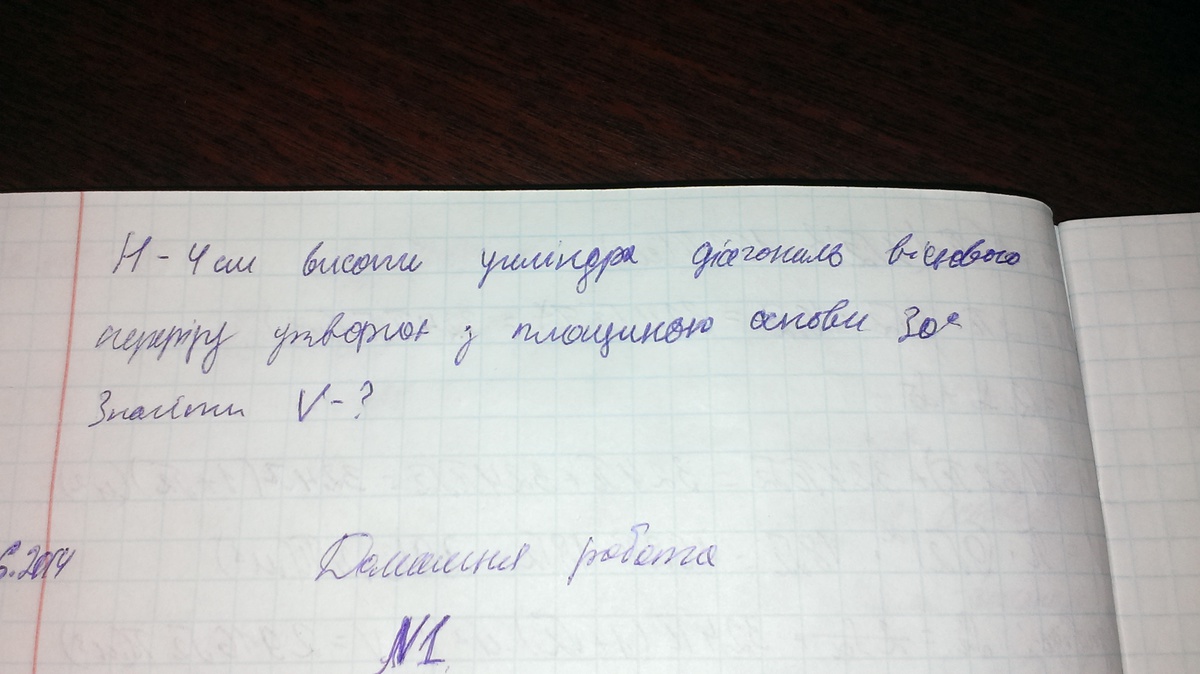 H - 4 см висоти циліндра діагональ вісьового
перерізу утворює з площиною основи 30°
Знайти V - ?
6.2014 Домашня робота
№1